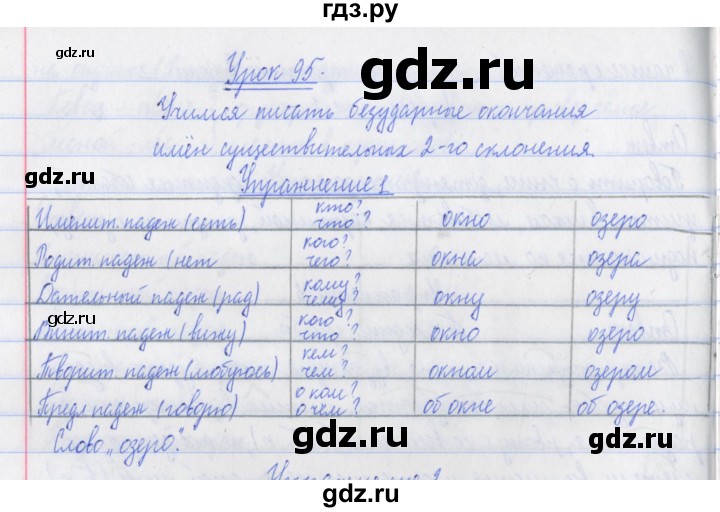 гдз.ру
gdz.ru gdz.ru
Урок 95.
Учимся писать безударные окончания
имён существительных 2-го склонения.
gdz.ru gdz.ru
Упражнение 1
Именит. падеж (есть) кто? что? окно озеро
Родит. падеж (нет кого? чего? окна озера
gdz.ru gdz.ru
Дательный падеж (рад) кому? чему? окну озеру
Винит. падеж (вижу) кого? что? окно озеро
gdz.ru gdz.ru
Творит. падеж (любуюсь) кем? чем? окном озером
Предл падеж (говорю) о ком? о чём? об окне об озере.
Слово „озеро".
gdz.ru gdz.ru
Упражнение 2
gdz.ru